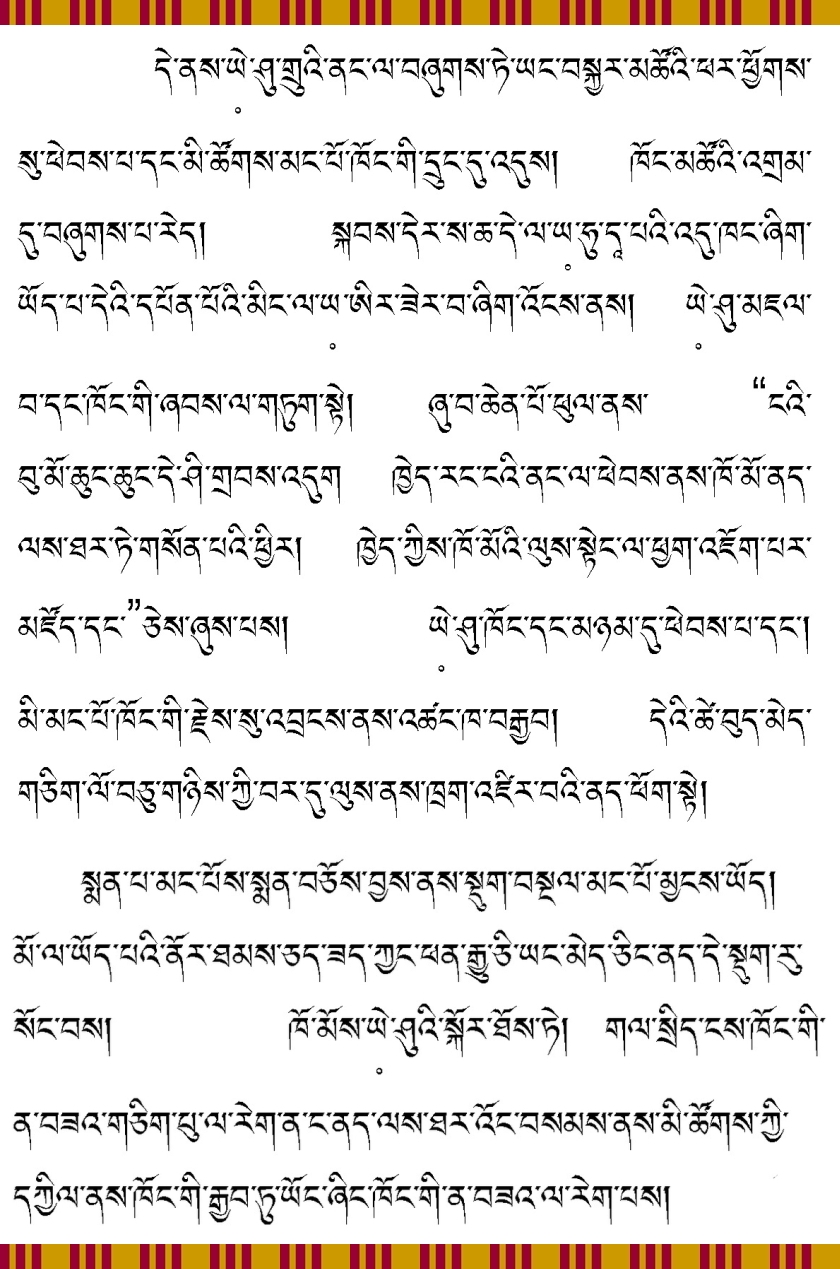 དེ་ནས་ཡེ་ཤུ་གྲུའི་ནང་ལ་བཞུགས་ཏེ་ཡང་བསྐྱར་མཚོའི་ཕར་ཕྱོགས་
སུ་ཕེབས་པ་དང་མི་ཚོགས་མང་པོ་ཁོང་གི་དྲུང་དུ་འདུས། ཁོང་མཚོའི་འགྲམ་
དུ་བཞུགས་པ་རེད། སྐབས་དེར་ས་ཆ་དེ་ལ་ཡ་ཧུ་དཱ་པའི་འདུ་ཁང་ཞིག་
ཡོད་པ་དེའི་དཔོན་པོའི་མིང་ལ་ཡ་ཨིར་ཟེར་བ་ཞིག་འོངས་ནས། ཡེ་ཤུ་མཇལ་
བ་དང་ཁོང་གི་ཞབས་ལ་གཏུག་སྟེ། ཞུ་བ་ཆེན་པོ་ཕུལ་ནས་ “ངའི་
བུ་མོ་ཆུང་ཆུང་དེ་ཤི་གྲབས་འདུག ཁྱེད་རང་ངའི་ནང་ལ་ཕེབས་ནས་ཁོ་མོ་ནད་
ལས་ཐར་ཏེ་གསོན་པའི་ཕྱིར། ཁྱེད་ཀྱིས་ཁོ་མོའི་ལུས་སྟེང་ལ་ཕྱག་འཇོག་པར་
མཛོད་དང་”ཅེས་ཞུས་པས། ཡེ་ཤུ་ཁོང་དང་མཉམ་དུ་ཕེབས་པ་དང་།
མི་མང་པོ་ཁོང་གི་རྗེས་སུ་འབྲངས་ནས་འཚང་ཁ་བརྒྱབ། དེའི་ཚེ་བུད་མེད་
གཅིག་ལོ་བཅུ་གཉིས་ཀྱི་བར་དུ་ལུས་ནས་ཁྲག་འཛིར་བའི་ནད་ཕོག་སྟེ།
སྨན་པ་མང་པོས་སྨན་བཅོས་བྱས་ནས་སྡུག་བསྔལ་མང་པོ་མྱངས་ཡོད།
མོ་ལ་ཡོད་པའི་ནོར་ཐམས་ཅད་ཟད་ཀྱང་ཕན་རྒྱུ་ཅི་ཡང་མེད་ཅིང་ནད་དེ་སྡུག་ཏུ་
སོང་བས། ཁོ་མོས་ཡེ་ཤུའི་སྐོར་ཐོས་ཏེ། གལ་སྲིད་ངས་ཁོང་གི་
ན་བཟའ་གཅིག་པུ་ལ་རེག་ན་ང་ནད་ལས་ཐར་འོང་བསམས་ནས་མི་ཚོགས་ཀྱི་
དཀྱིལ་ནས་ཁོང་གི་རྒྱབ་ཏུ་ཡོང་ཞིང་ཁོང་གི་ན་བཟའ་ལ་རེག་པས།